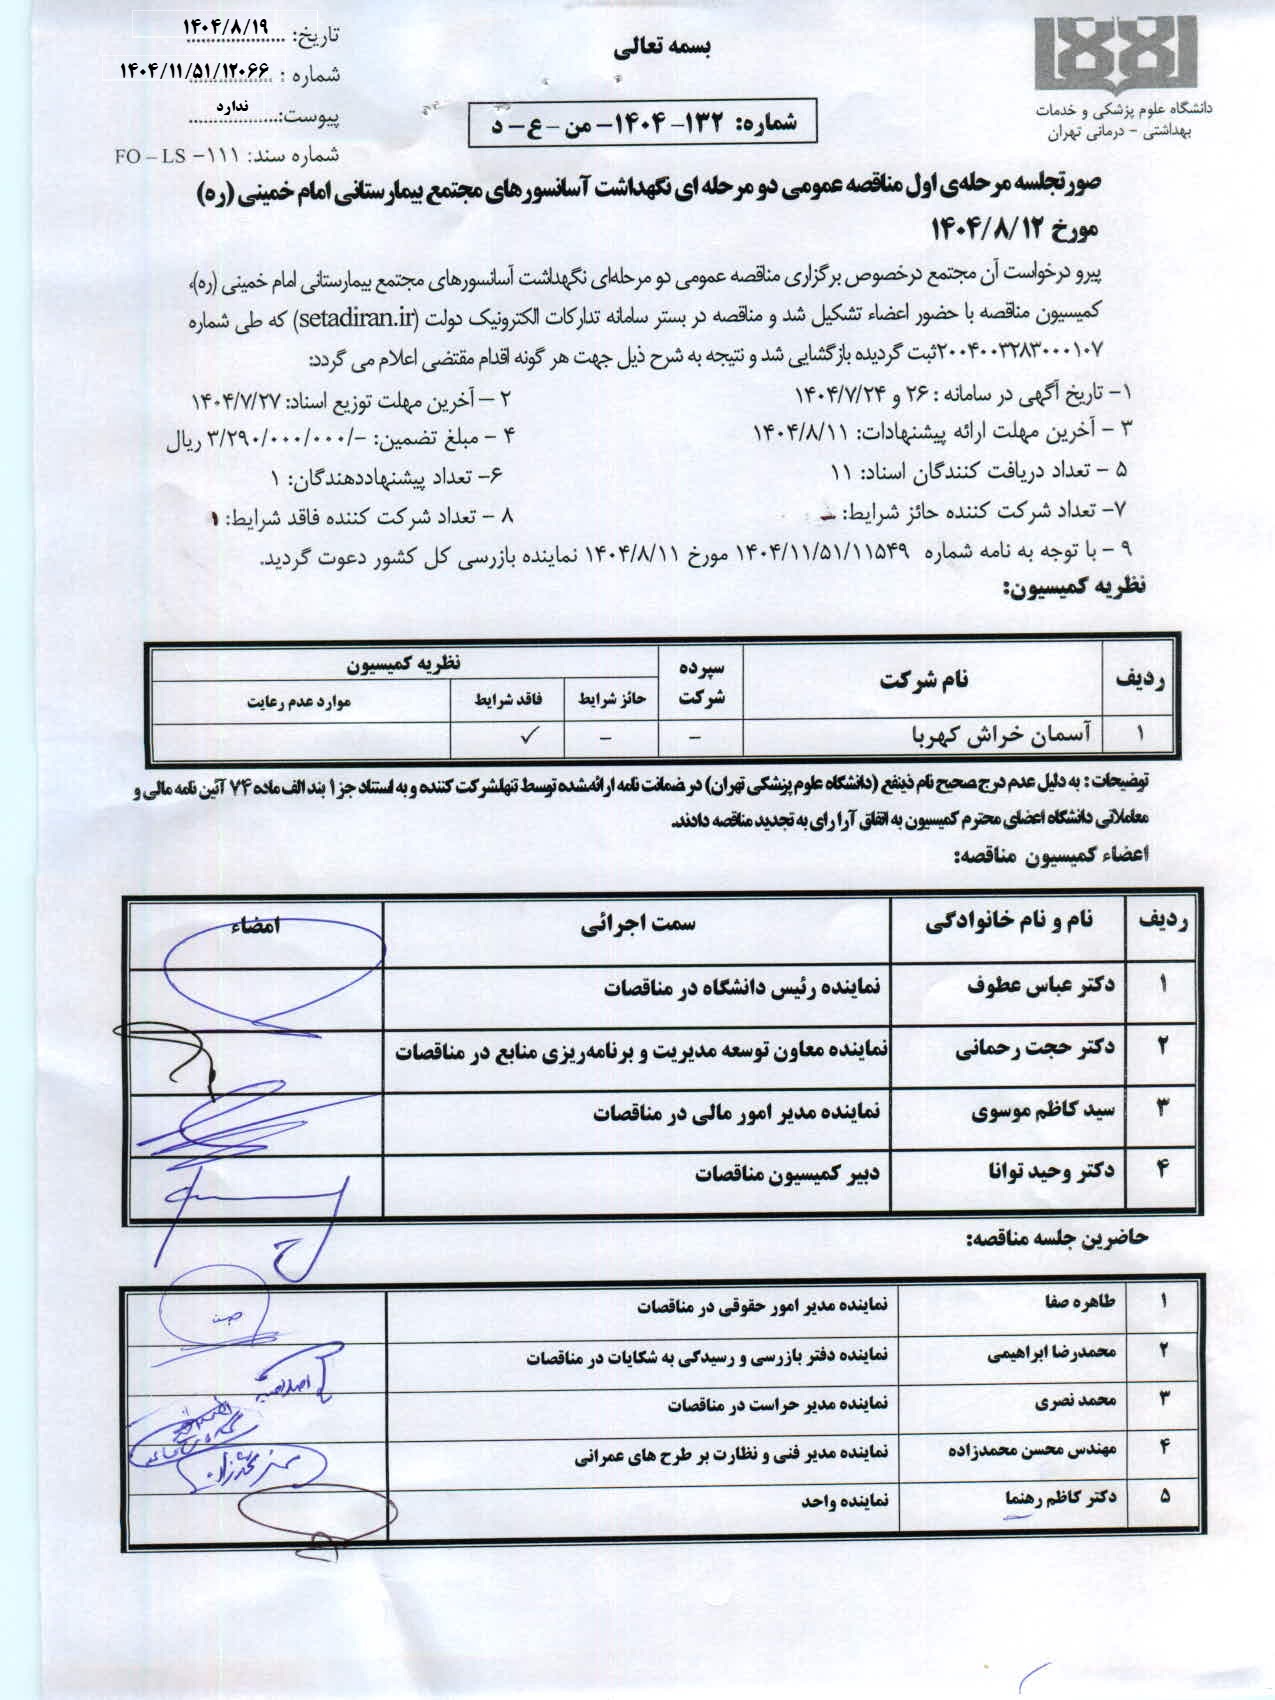 بسمه تعالی
تاریخ: ۱۴۰۴/۸/۱۹
شماره : ۱۴۰۴/۱۱/۵۱/۱۲۰۶۶
پیوست: ندارد
شماره سند: FO – LS –۱۱۱
دانشگاه علوم پزشکی و خدمات
بهداشتی – درمانی تهران
شماره: ۱۳۲– ۱۴۰۴– من –ع– د
صورتجلسه مرحله‌ی اول مناقصه عمومی دو مرحله ای نگهداشت آسانسورهای مجتمع بیمارستانی امام خمینی (ره)
مورخ ۱۴۰۴/۸/۱۲
پیرو درخواست آن مجتمع درخصوص برگزاری مناقصه عمومی دو مرحله‌ای نگهداشت آسانسورهای مجتمع بیمارستانی امام خمینی (ره)،
کمیسیون مناقصه با حضور اعضاء تشکیل شد و مناقصه در بستر سامانه تدارکات الکترونیک دولت (setadiran.ir) که طی شماره
۲۰۰۴۰۰۳۲۸۳۰۰۰۱۰۷ثبت گردیده بازگشایی شد و نتیجه به شرح ذیل جهت هر گونه اقدام مقتضی اعلام می گردد:
۱– تاریخ آگهی در سامانه : ۲۶ و ۱۴۰۴/۷/۲۴ ۲ – آخرین مهلت توزیع اسناد: ۱۴۰۴/۷/۲۷
۳ – آخرین مهلت ارائه پیشنهادات: ۱۴۰۴/۸/۱۱ ۴ – مبلغ تضمین: –/۳/۲۹۰/۰۰۰/۰۰۰ ریال
۵ – تعداد دریافت کنندگان اسناد: ۱۱ ۶– تعداد پیشنهاددهندگان: ۱
۷– تعداد شرکت کننده حائز شرایط: – ۸ – تعداد شرکت کننده فاقد شرایط: ۱
۹ – با توجه به نامه شماره ۱۴۰۴/۱۱/۵۱/۱۱۵۴۹ مورخ ۱۴۰۴/۸/۱۱ نماینده بازرسی کل کشور دعوت گردید.
نظریه کمیسیون:
ردیف نام شرکت سپرده شرکت نظریه کمیسیون
حائز شرایط فاقد شرایط موارد عدم رعایت
۱ آسمان خراش کهربا – – ✓
توضیحات : به دلیل عدم درج صحیح نام ذینفع (دانشگاه علوم پزشکی تهران) در ضمانت نامه ارائه‌شده توسط تنهاشرکت کننده و به استناد جز ۱ بند الف ماده ۷۴ آئین نامه مالی و
معاملاتی دانشگاه اعضای محترم کمیسیون به اتفاق آرا رای به تجدید مناقصه دادند.
اعضاء کمیسیون مناقصه:
ردیف نام و نام خانوادگی سمت اجرائی امضاء
۱ دکتر عباس عطوف نماینده رئیس دانشگاه در مناقصات
۲ دکتر حجت رحمانی نماینده معاون توسعه مدیریت و برنامه‌ریزی منابع در مناقصات
۳ سید کاظم موسوی نماینده مدیر امور مالی در مناقصات
۴ دکتر وحید توانا دبیر کمیسیون مناقصات
حاضرین جلسه مناقصه:
۱ طاهره صفا نماینده مدیر امور حقوقی در مناقصات
۲ محمدرضا ابراهیمی نماینده دفتر بازرسی و رسیدگی به شکایات در مناقصات
۳ محمد نصری نماینده مدیر حراست در مناقصات
۴ مهندس محسن محمدزاده نماینده مدیر فنی و نظارت بر طرح های عمرانی
۵ دکتر کاظم رهنما نماینده واحد